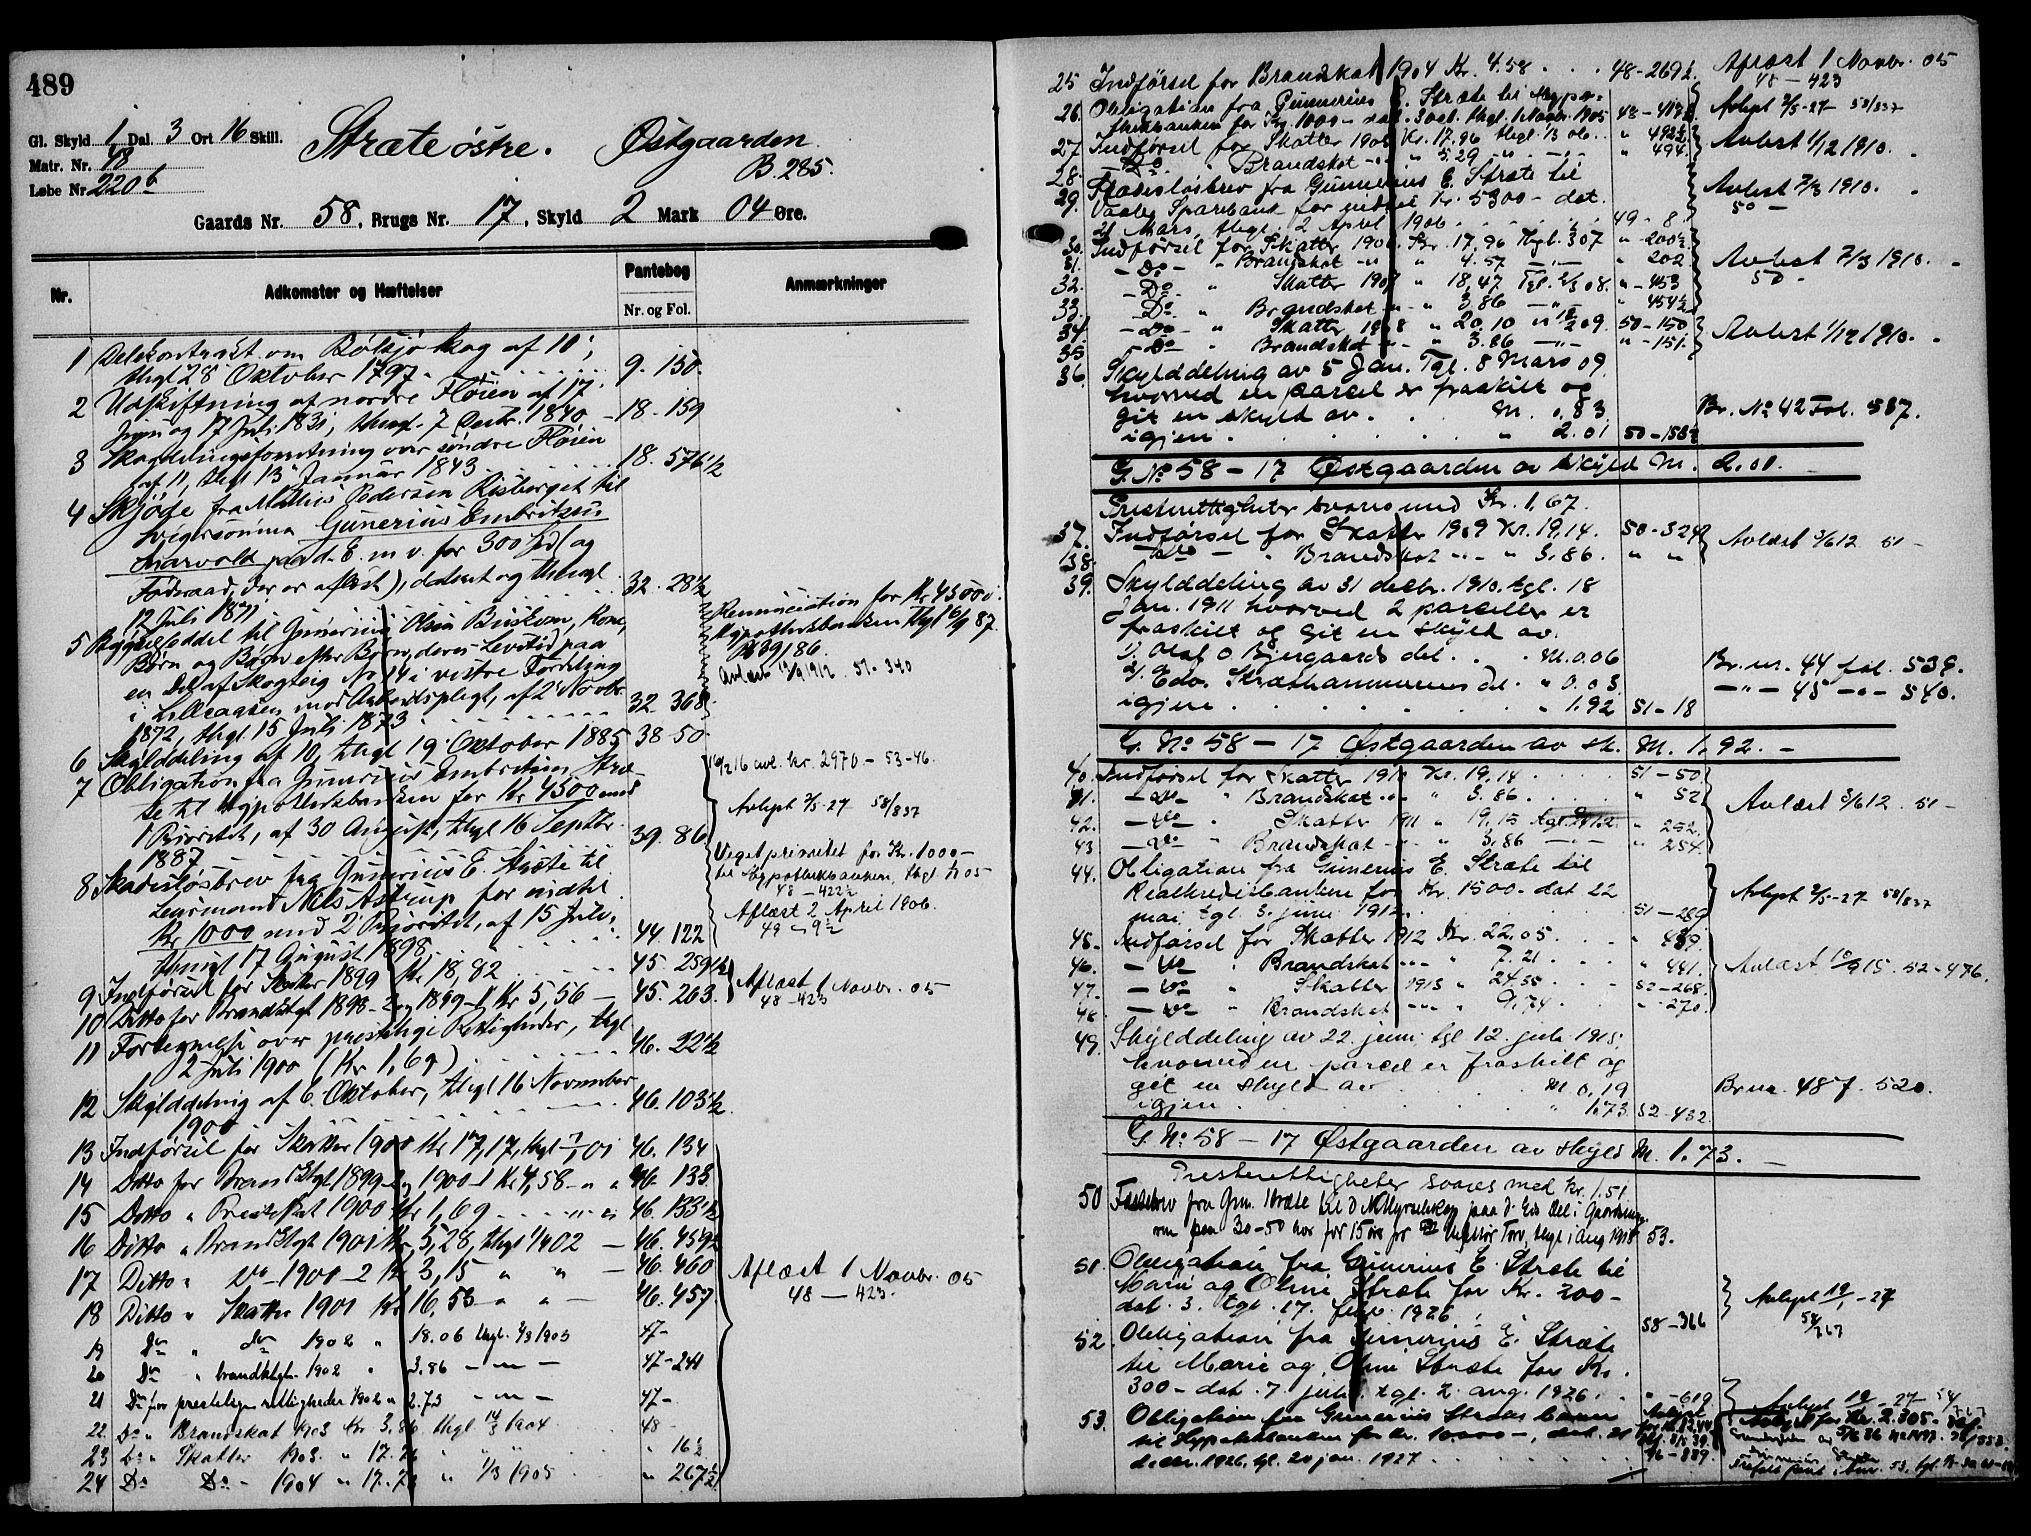 489
Gl. Skyld 1 Dal. 3 Ort 16 Skill.
Matr. Nr. 48
Løbe Nr. 220b
Stræte østre. Østgaarden
B. 285.
Gaards Nr. 58, Brugs Nr. 17, Skyld 2 Mark 04 Øre.
Nr. Adkomster og Hæftelser Pantebog Anmærkninger
Nr. og Fol.
1 Delekontrakt om Bølsjø Skog af 10',
thgl 28 Oktober 1797 9. 150
2 Udskiftning af nordre Fløien af 17
Juni og 17 Juli 1831, thngl. 7 Decbr. 1840 18. 159
3 Skogdelingsforretning over søndre Fløien
af 11, thgl 13 Januar 1843 18. 576 1/2
4 Skjøde fra Mathis Pedersen Risberget til
Svigersønnen Gunerius Embretsen
paa d. E. m v. for 300 Spd (og
Føderaad, der er aflæst), dateret og thingl.
12 Juli 1871 32. 28 1/2
5 Bygselseddel til Gunerius Olsen Kone,
Børn og Børn efter Børn, deres Levetid paa
en Del af Skogteig No 14 i vestre Fordeling
i Lilleaasen mod Arbeidspligt, af 2 Novbr.
1872, thgl. 15 Juli 1873 32. 368
6 Skylddeling af 10, thgl 19 Oktober 1885 38. 50
7 Obligation fra Gunerius Embretsen Stræ-
te til Hypothekbanken for Kr 4500 med
1 Prioritet, af 30 August, thgl 16 Septbr.
1887 39. 86
8 Skadesløsbrev fra Gunerius E. Stræte til
Lensmand Nils Astrup for indtil
Kr 1000 med 2 Prioritet, af 15 Juli,
thingl 17 August 1898 44. 122
9 Indførsel for Skatter 1899 Kr 18,82 45. 259 1/2
10 Ditto for Brandktgt 1898-2 og 1899-1 Kr 5,56 45. 263
11 Fortegnelse over præstelige Rettigheder, thgl
2 Juli 1900 (Kr 1,69) 46. 22 1/2
12 Skylddeling af 6. Oktober, thgl 16 November
1900 46. 103 1/2
13 Indførsel for Skatter 1900 Kr 17,17, thgl 7/1 01 46. 134
14 Ditto for Brandktgt 1899-2 og 1900-1 Kr 4,58 " " 46. 133
15 Ditto " Presteskat 1900 Kr 1,69 46. 133 1/2
16 Ditto " Brandktgt 1901 Kr 5,28, thgl 1/4 02 46. 459 1/2
17 Ditto " Do 1900-2 Kr 3,15 " " 46. 460
18 Ditto " Skatter 1901 Kr 16,53 " " 46. 457
19 Do " Do 1902 " 18.06 thgl. 1/3 1903 47-
20 Do " brandktgtn 1902 " 3.86 47-241
21 Do for prestelige rettigheder 1902 " 2.73 47-
22 Do " Brandskat 1903 Kr 3.86 thgl 14/3 1904 48-
23 Do " Skatter 1903 " 17.26 " " 16 1/2
24 Do Do 1904 " 17.73 " 1/3 1905 " 267 1/2
Renunciation for Kr 45000
Hypothekbanken thgl 16/9 87.
B 39/86.
Avlæst 1912. 51-340
16/2 16 avl. kr. 2970 - 53-46.
Avlyst 2/5-27 58/837
Veget prioritet for Kr. 1000-
til Hypothekbanken, thgl. 1/11 05
48-422 1/2
Aflæst 2 April 1906.
49-9 1/2
Aflæst 1 Novbr. 05
48-423
Aflæst 1 Novbr. 05
48-423.
25 Indførsel for Brandskat 1904 Kr. 4.58 48-269 1/2 Aflæst 1 Novbr. 05
48-423
26. Obligation fra Gunnerius E. Stræte til Hypo-
thekbanken for Kr. 1000- dat. 30 okt. thgl. 1 Novbr. 1905 48-417 1/2 Avlyst 2/5-27 58/837
27 Indførsel for Skatter 1905 Kr. 17.96 thgl. 1/3 06. " 492 1/2 Avlæst 1/12 1910.
28. Do " Brandskat " 5.29 " 494
29. Skadesløsbrev fra Gunnerius E. Stræte til
Vaaler Sparebank for indtil Kr. 5300- dat.
21 Mars, thgl. 2 April 1906 49-8 Avlæst 7/3 1910.
50-
30. Indførsel for Skatter 1906 Kr. 17.96 thgl. 3/3 07 " 200 1/2
31. Do " Brandskat " 4.57 " 202 Avlæst 7/3 1910.
50-
32. Do " Skatter 1907 " 18,47 Tgl. 2/3 08. " 453
33. Do " Brandskat " 3.86 " 454 1/2
34. Do " Skatter 1908 " 20.10 " 18/2 09. 50-150 Avlæst 1/12 1910.
35 Do " Brandskat " 3.86 " 151.
36. Skylddeling av 5 Jan. Tgl. 8 Mars 09
hvorved en parcel er fraskilt og
git en skyld av M. 0.83 Br. No 42 Fol. 537.
igjen " 2.01 50-158 1/2
G. No 58 - 17 Østgaarden av skyld M. 2.01.
Presterettigheter svares med Kr. 1,67.
37. Indførsel for Skatter 1909 Kr. 19,14. 50-324 Avlæst 3/6 12 51-
38. Do " Brandskat " " 3.86. " "
39. Skylddeling av 31 decbr. 1910, tgl. 18
Jan. 1911 hvorved 2 parceller er
fraskilt og git en skyld av.
1) Olaf O. Bjergaards del M. 0.06 Br. nr. 44 fol. 539.
2) Edv. Stræthammerens del " 0.03 " 45 " 540.
igjen " 1.92 51-18
G. No 58 - 17 Østgaarden av sk. M. 1.92.-
40. Indførsel for Skatter 1910 Kr. 19.14 51-50
41. Do " Brandskat " 3.86 " 52 Avlæst 3/6 12. 51-
42. Do " Skatter 1911 " 19,15 " 252.
43 Do " Brandskat " 3.86 " 254
44. Obligation fra Gunerius E. Stræte til
Realkreditbanken for Kr. 1500- dat 22
mai tgl 3. juni 1912. 51-289 Avlyst 2/5-27 58/837
45. Indførsel for Skatter 1912 Kr. 22.05 " 439
46. Do " Brandskat " 7.21 " 441. Avlæst 10/9 15. 52-476
47. Do " Skatter 1913 " 24.55 52-268.
48. Do " Brandskat " 9.74 " 270.
49. Skylddeling av 22. juni tgl 12. juli 1915.
hvorved en parcel er fraskilt og
git en skyld av M 0,19 Br nr. 48 f. 520.
igjen " 1.73 52-432
G. No 58 - 17 Østgaarden av skyld M. 1.73.-
Presterettigheter svares med Kr. 1.51
50 Festebrev fra Gun. Stræte til paa
53.
51. Obligation fra Gunerius E. Stræte til
Marie og Oline Stræte for Kr. 200-
dat. 3. tgl. 17. febr. 1926 58-366 Avlyst 19/1-27
58/767
52. Obligation fra Gunerius E. Stræte
til Marie og Oline Stræte for Kr.
300- dat. 7. juli tgl. 2. aug. 1926. " -619 Avlyst 19/1-27 58/767
53. Obligation fra Gunerius Stræte
til Hypotekbanken for kr. 10.000-, dat. 21
decbr. 1926, tgl. 20 jan. 1927